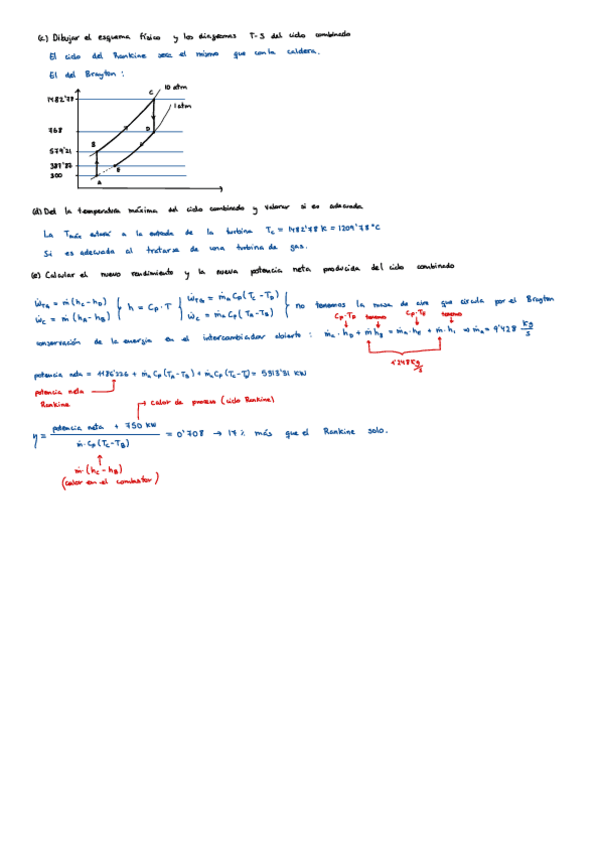 (c) Dibujar el esquema físico y los diagramas T-S del ciclo combinado
El ciclo del Rankine será el mismo que con la caldera.
El del Brayton:
C 10 atm
1482'78
1 atm
768 D
579'21 B
387'87 E
300
A
(d) Det la temperatura máxima del ciclo combinado y valorar si es adecuada
La Tmáx estará a la entrada de la turbina Tc = 1482'78 K = 1209'78 °C
Si es adecuada al tratarse de una turbina de gas.
(e) Calcular el nuevo rendimiento y la nueva potencia neta producida del ciclo combinado
ẆTG = ṁ (hC - hD)
ẆC = ṁ (hA - hB)
h = Cp · T
ẆTG = ṁa Cp (TC - TD)
ẆC = ṁa Cp (TA - TB)
no tenemos la masa de aire que circula por el Brayton
Cp·TD tenemos Cp·TE tenemos
conservación de la energía en el intercambiador abierto: ṁa · hD + ṁ h8 = ṁa · hE + ṁ · h1 ⇒ ṁa = 9'428 kg/s
1'248 kg/s
potencia neta = 1186'326 + ṁa Cp (TA - TB) + ṁa Cp (TC - TD) = 5913'31 KW
potencia neta
Rankine
calor de proceso (ciclo Rankine)
η = potencia neta + 750 KW / ṁ · Cp (TC - TB) = 0'708 → 17 % más que el Rankine solo.
ṁ · (hC - hB)
(calor en el combustor)